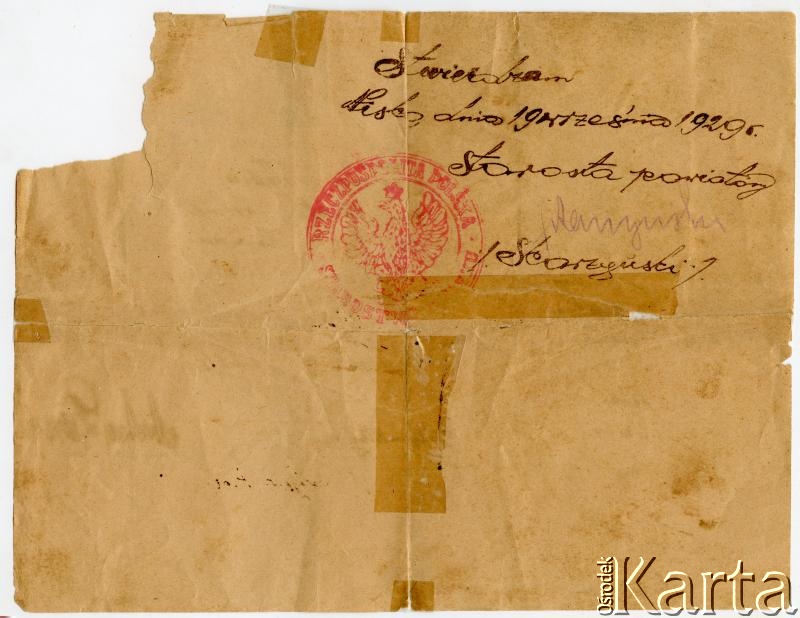 Stwierdzam
Nisko, dnia 19 września 1929 r.
Starosta powiatowy
/Skarzyński/
RZECZPOSPOLITA POLSKA
Ośrodek
Karta